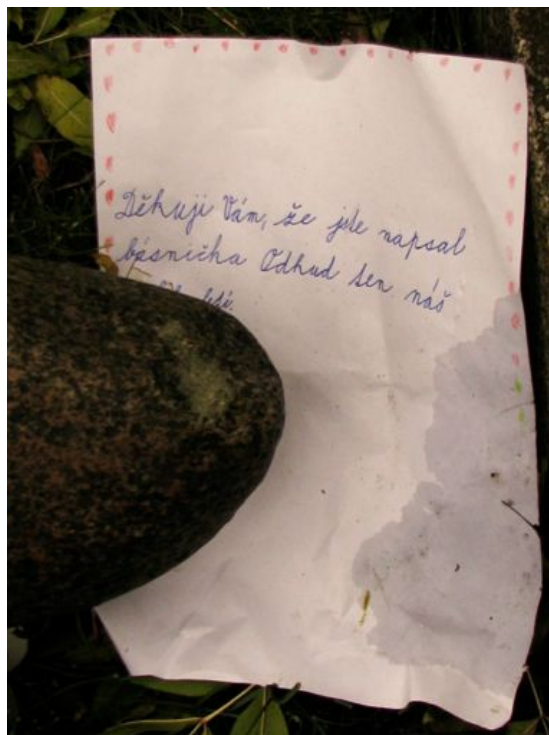 Děkuji Vám, že jste napsal
básnička Odkud ten náš
letí.